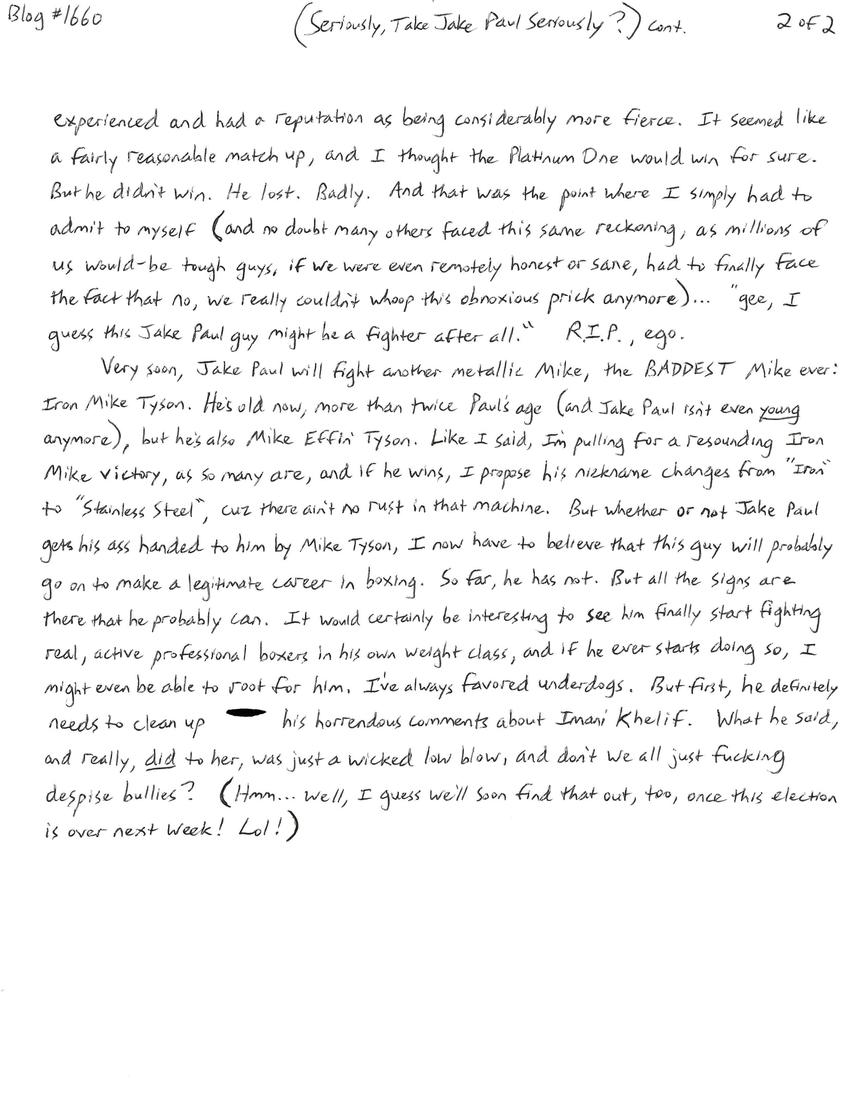 Blog #1660 (Seriously, Take Jake Paul Seriously?) cont. 2 of 2
experienced and had a reputation as being considerably more fierce. It seemed like
a fairly reasonable match up, and I thought the Platinum One would win for sure.
But he didn't win. He lost. Badly. And that was the point where I simply had to
admit to myself (and no doubt many others faced this same reckoning, as millions of
us would-be tough guys, if we were even remotely honest or sane, had to finally face
the fact that no, we really couldn't whoop this obnoxious prick anymore)... "gee, I
guess this Jake Paul guy might be a fighter after all." R.I.P., ego.
Very soon, Jake Paul will fight another metallic Mike, the BADDEST Mike ever:
Iron Mike Tyson. He's old now, more than twice Paul's age (and Jake Paul isn't even young
anymore), but he's also Mike Effin' Tyson. Like I said, I'm pulling for a resounding Iron
Mike victory, as so many are, and if he wins, I propose his nickname changes from "Iron"
to "Stainless Steel", cuz there ain't no rust in that machine. But whether or not Jake Paul
gets his ass handed to him by Mike Tyson, I now have to believe that this guy will probably
go on to make a legitimate career in boxing. So far, he has not. But all the signs are
there that he probably can. It would certainly be interesting to see him finally start fighting
real, active professional boxers in his own weight class, and if he ever starts doing so, I
might even be able to root for him. I've always favored underdogs. But first, he definitely
needs to clean up his horrendous comments about Imani Khelif. What he said,
and really, did to her, was just a wicked low blow, and don't we all just fucking
despise bullies? (Hmm... well, I guess we'll soon find that out, too, once this election
is over next week! Lol!)